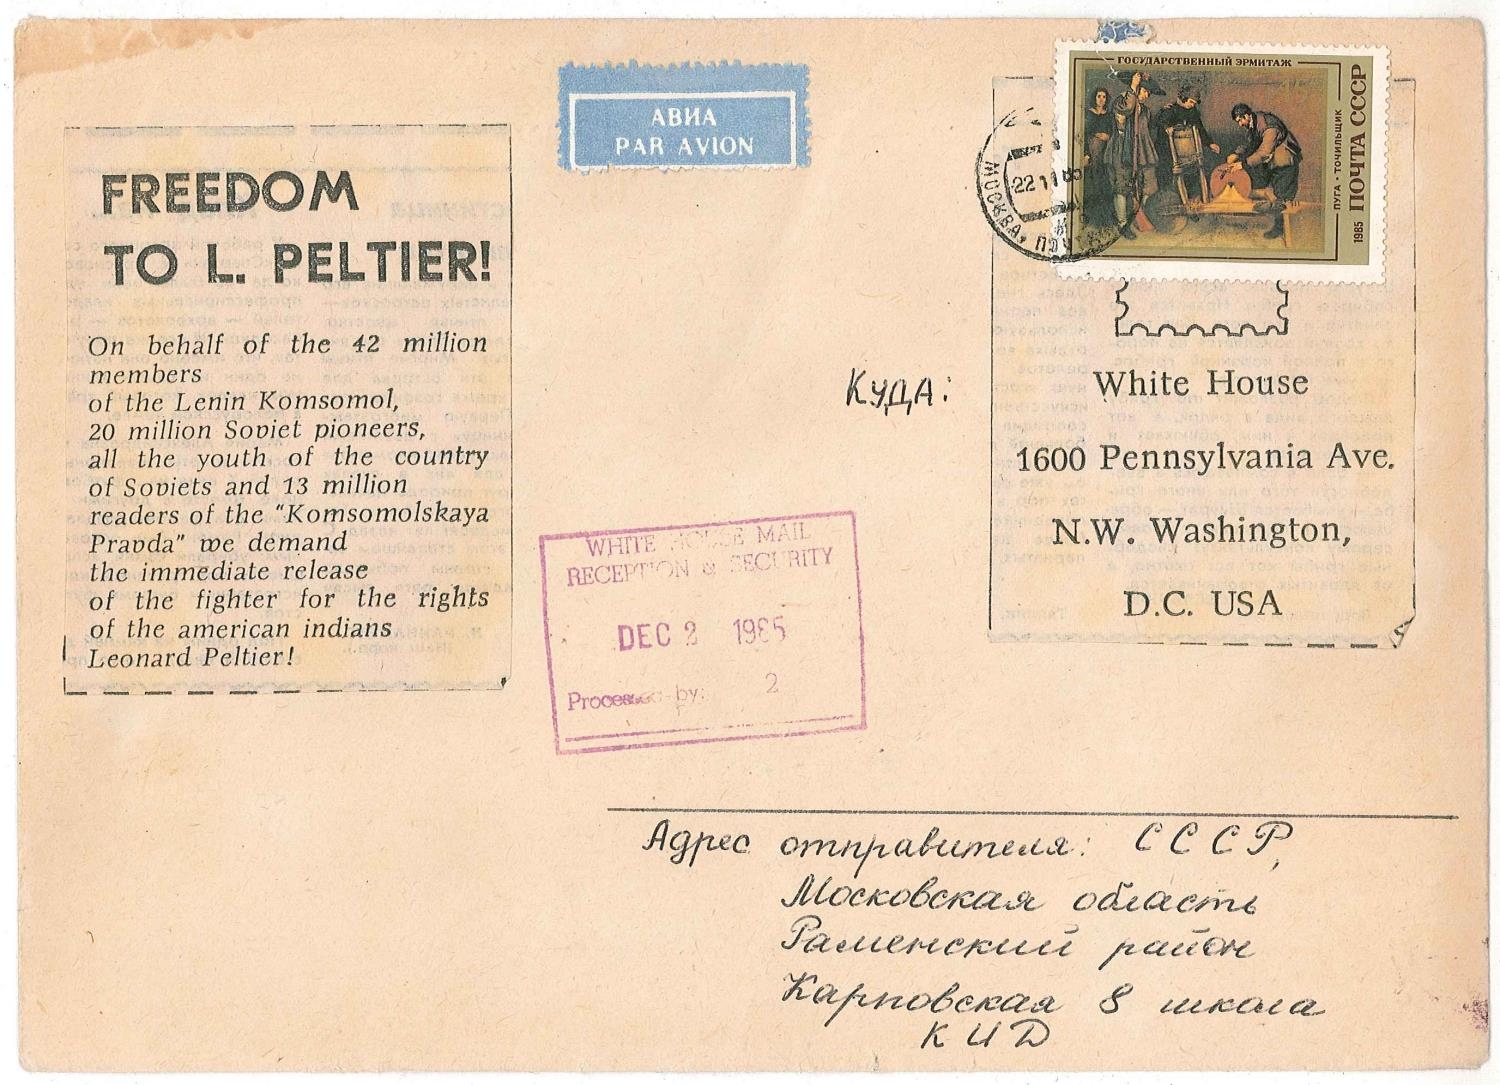 АВИА
PAR AVION
ГОСУДАРСТВЕННЫЙ ЭРМИТАЖ
ПУГА • ТОЧИЛЬЩИК
1985 ПОЧТА СССР
МОСКВА
22 11
FREEDOM
TO L. PELTIER!
On behalf of the 42 million
members
of the Lenin Komsomol,
20 million Soviet pioneers,
all the youth of the country
of Soviets and 13 million
readers of the "Komsomolskaya
Pravda" we demand
the immediate release
of the fighter for the rights
of the american indians
Leonard Peltier!
Куда:
White House
1600 Pennsylvania Ave.
N.W. Washington,
D.C. USA
WHITE HOUSE MAIL
RECEPTION & SECURITY
DEC 2 1985
Processed by: 2
Адрес отправителя: СССР,
Московская область
Раменский район
Карповская 8 школа
КИД